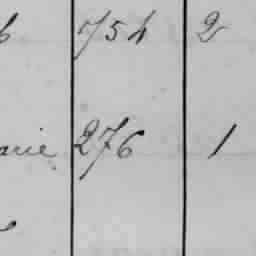 754 2
arie 276 1